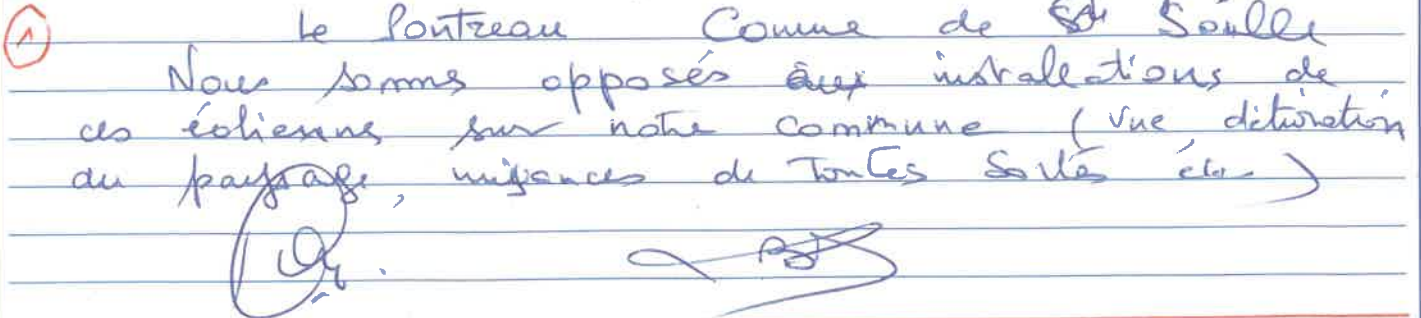 ① Le Pontreau Comme de St Soulle
Nous somms opposés aux installations de
ces éolienne sur notre commune ( vue détérioration
du paysage, nuisances de Toutes Sortes etc. )